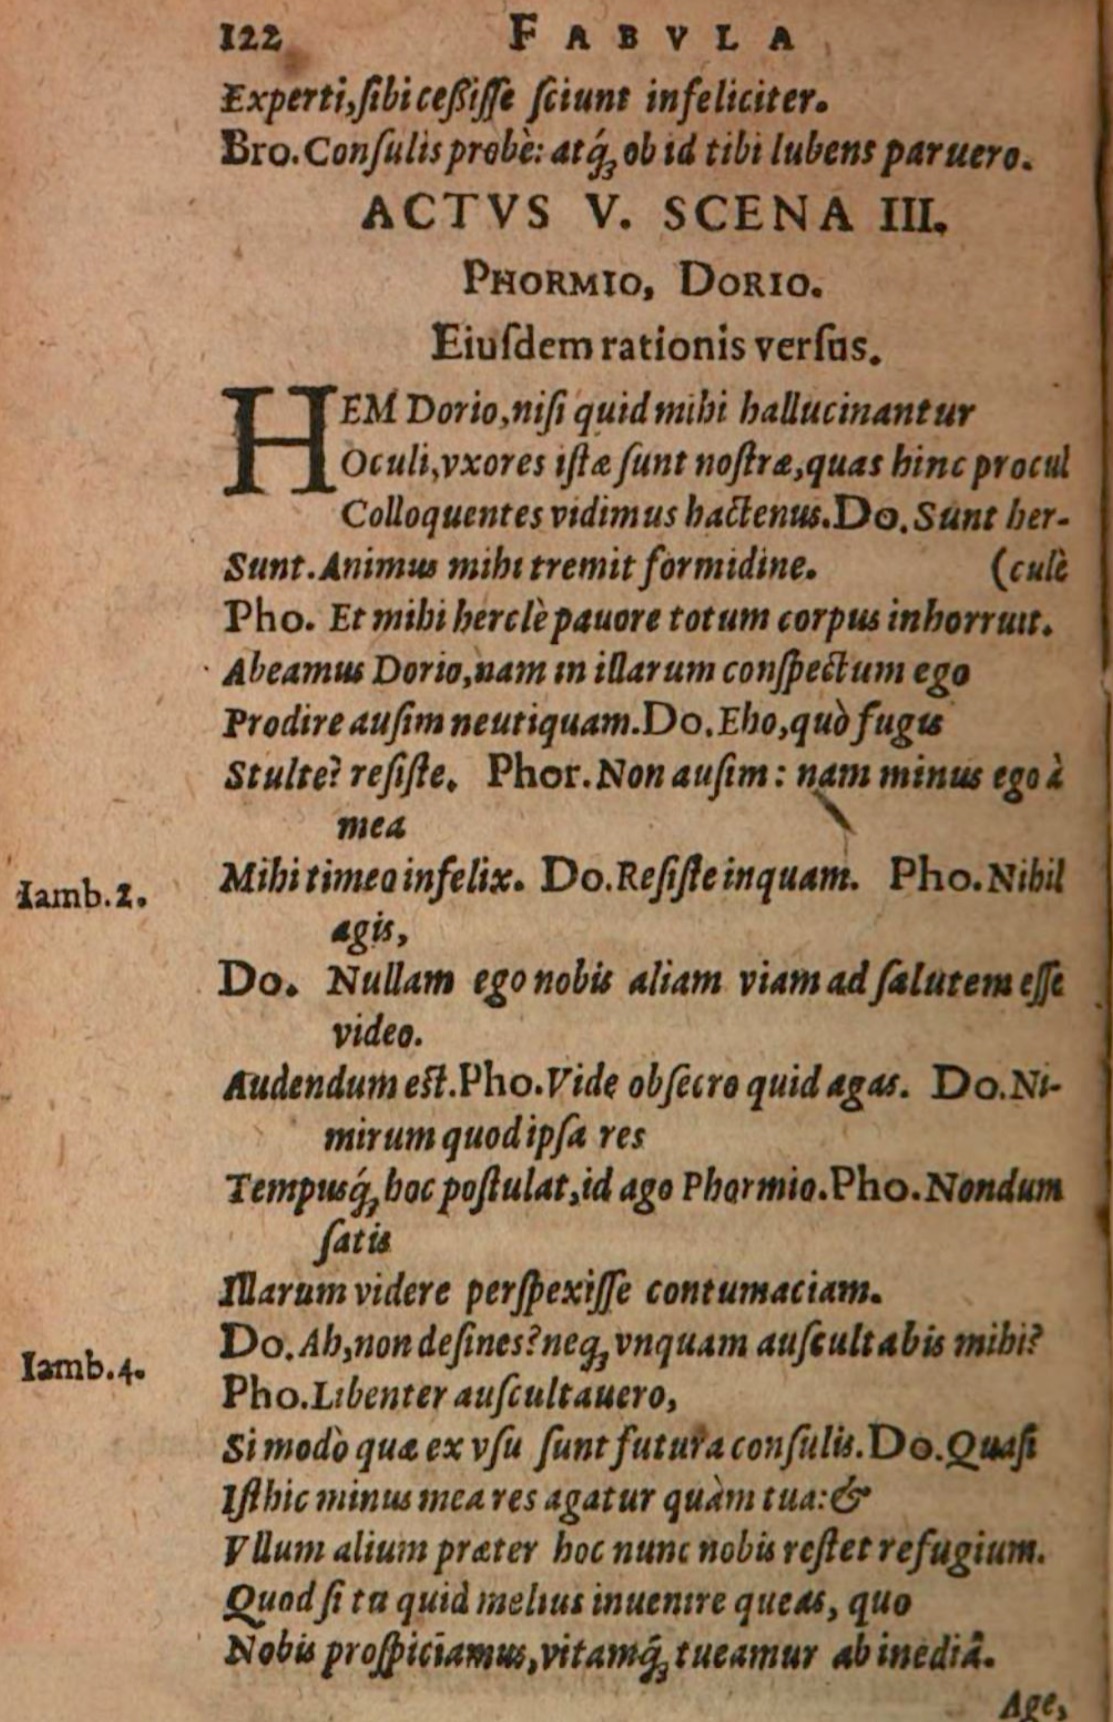 122 FABVLA
Experti, sibi ceßisse sciunt infeliciter.
Bro. Consulis probè: atq́; ob id tibi lubens paruero.
ACTVS V. SCENA III.
PHORMIO, DORIO.
Eiusdem rationis versus.
HEM Dorio, nisi quid mihi hallucinantur
Oculi, vxores istæ sunt nostræ, quas hinc procul
Colloquentes vidimus hactenus. Do. Sunt her-
Sunt. Animus mihi tremit formidine. (culè
Pho. Et mihi herclè pauore totum corpus inhorruit.
Abeamus Dorio, nam in illarum conspectum ego
Prodire ausim neutiquam. Do. Eho, quò fugis
Stulte? resiste. Phor. Non ausim: nam minus ego à
mea
Iamb. 2. Mihi timeo infelix. Do. Resiste inquam. Pho. Nihil
agis,
Do. Nullam ego nobis aliam viam ad salutem esse
video.
Audendum est. Pho. Vide obsecro quid agas. Do. Ni-
mirum quod ipsa res
Tempusq́; hoc postulat, id ago Phormio. Pho. Nondum
satis
Illarum videre perspexisse contumaciam.
Iamb. 4. Do. Ah, non desines? neq; vnquam auscultabis mihi?
Pho. Libenter auscultauero,
Si modò quæ ex vsu sunt futura consulis. Do. Quasi
Isthic minus mea res agatur quàm tua: &
Vllum alium præter hoc nunc nobis restet refugium.
Quod si tu quid melius inuenire queas, quo
Nobis prospiciamus, vitamq́; tueamur ab inediâ.
Age,